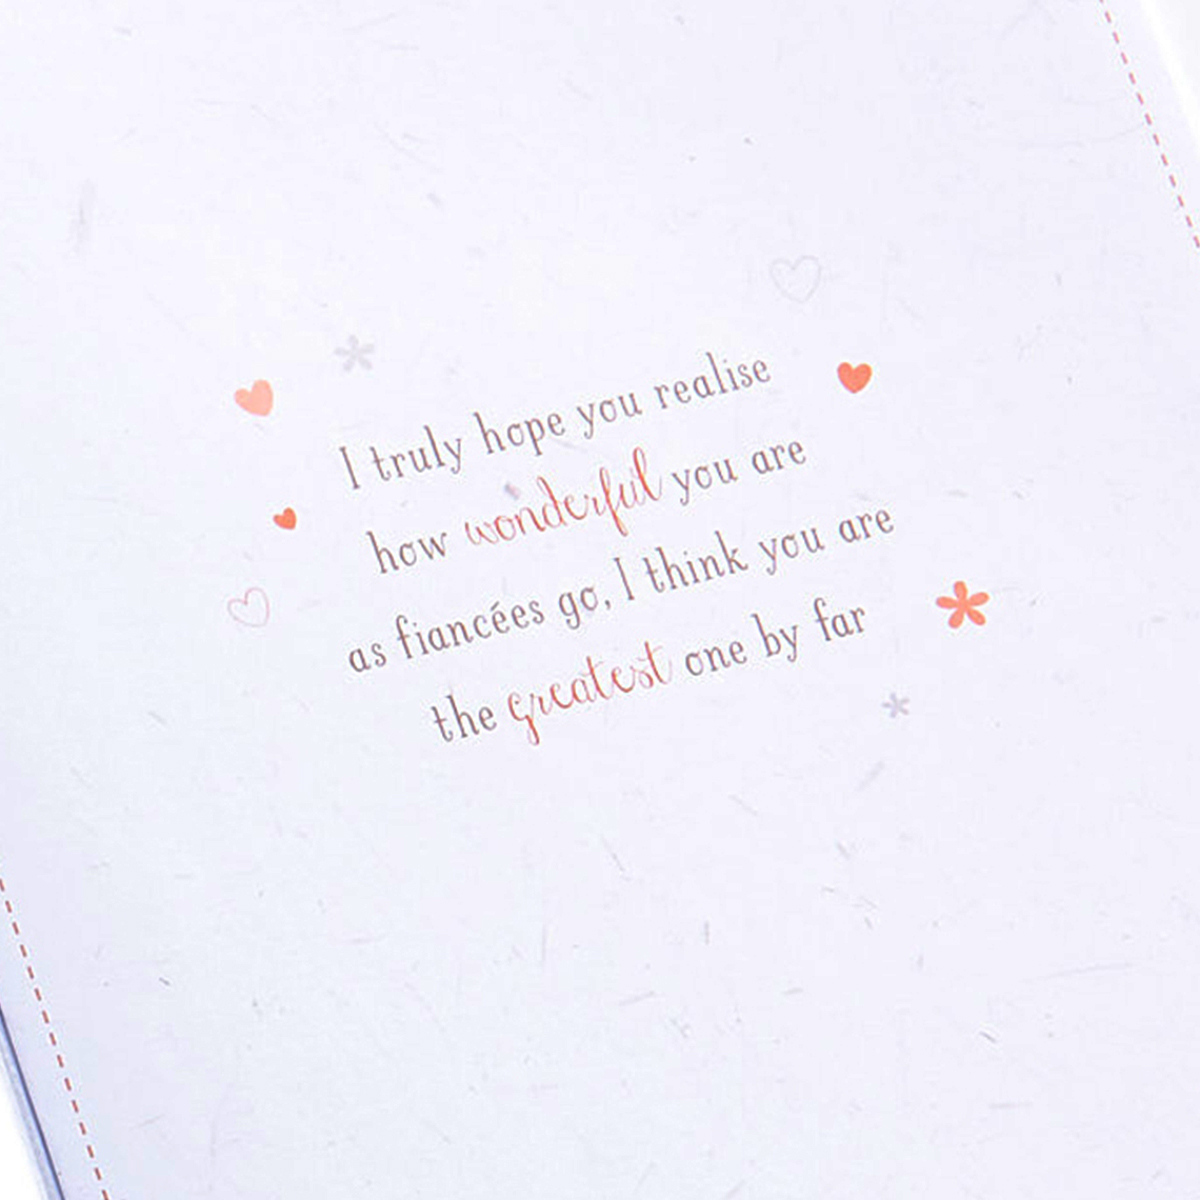 I truly hope you realise
how wonderful you are
as fiancées go, I think you are
the greatest one by far